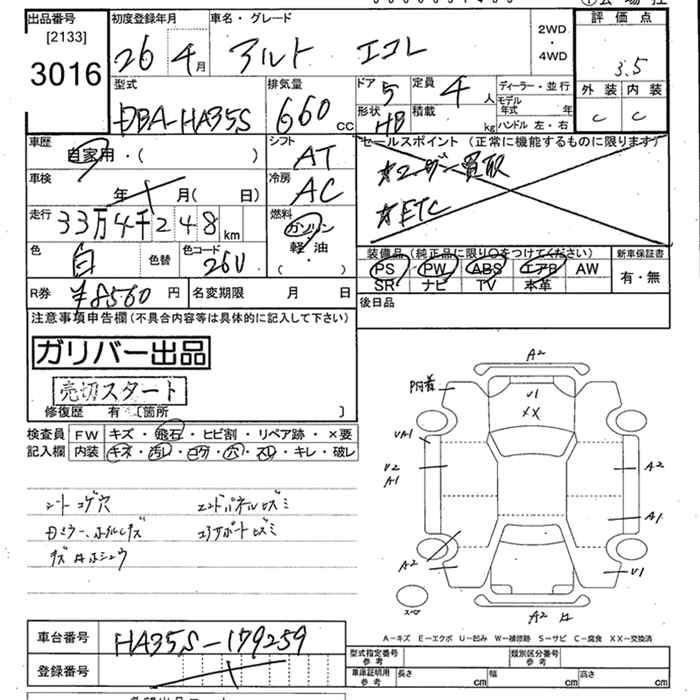 出品番号
[2133]
3016
初度登録年月
26年4月
車名・グレード
アルト エコレ
2WD
・
4WD
評価点
3.5
外装 内装
C C
型式
DBA-HA35S
排気量
660 cc
ドア 5
定員 4人
形状 HB
積載 kg
ディーラー・並行
モデル年式 年
ハンドル 左・右
車歴
自家用・( )
シフト
AT
セールスポイント (正常に機能するものに限ります)
★ユーザー買取
★ETC
車検
年 月( 日)
冷房
AC
走行
33万4千248km
燃料
ガソリン
軽油
( ・ )
色
白
色替
色コード
26U
装備品 (純正品に限り○をつけてください)
PS PW ABS エアB AW
SR ナビ TV 本革
新車保証書
有・無
R券 ¥8560円
名変期限 月 日
後日品
注意事項申告欄(不具合内容等は具体的に記入して下さい)
ガリバー出品
売切スタート
修復歴 有 [箇所 ]
検査員 FW キズ・飛石・ヒビ割・リペア跡・×要
記入欄 内装 キズ・汚レ・コゲ・穴・スレ・キレ・破レ
シートコゲ穴 エンドパネルヒズミ
コアサポートヒズミ
A2
U1
XX
U2
A1
A2
A1
A2
U1
A2
スペア
A-キズ E-エクボ U-凹み W-補修跡 S-サビ C-腐食 XX-交換済
車台番号 HA35S-179259
登録番号
型式指定番号
参考
類別区分番号
参考
車庫証明用
参考
長さ cm
幅 cm
高さ cm